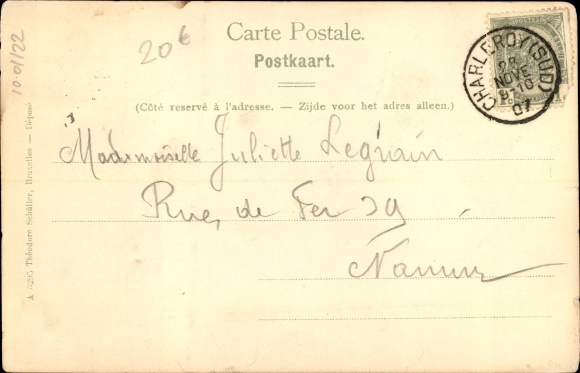 20€
10-01/22
Carte Postale.
Postkaart.
(Côté reservé à l'adresse. — Zijde voor het adres alleen.)
CHARLEROY (SUD)
28
NOVE
07
Mademoiselle Juliette Legrain
Rue de Fer 39
Namur
Théodore Schüller, Bruxelles — Déposé